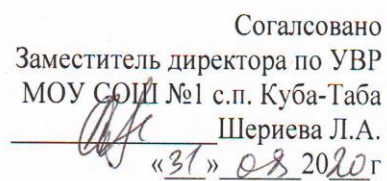 Согалсовано
Заместитель директора по УВР
МОУ СОШ №1 с.п. Куба-Таба
Шериева Л.А.
«31» 08 2020г